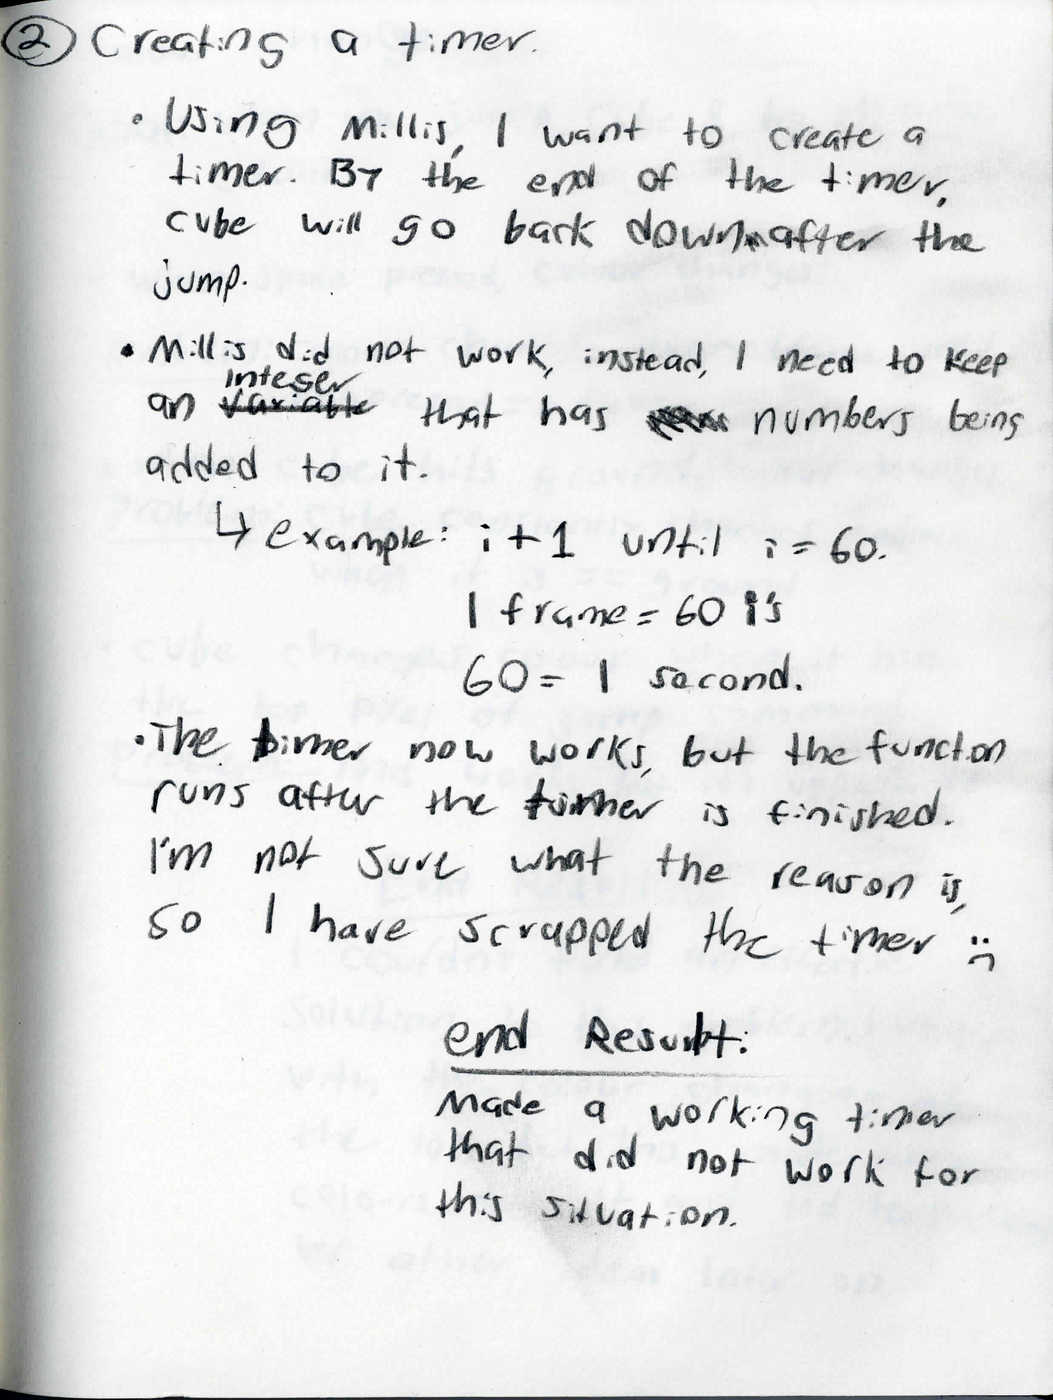 ② Creating a timer.
• Using Millis, I want to create a
timer. By the end of the timer,
cube will go back down after the
jump.
• Millis did not work, instead, I need to keep
integer
an variable that has numbers being
added to it.
↳ example: i+1 until i = 60.
1 frame = 60 i's
60 = 1 second.
• The timer now works, but the function
runs after the timer is finished.
I'm not sure what the reason is,
so I have scrapped the timer :(
end Result:
Made a working timer
that did not work for
this situation.